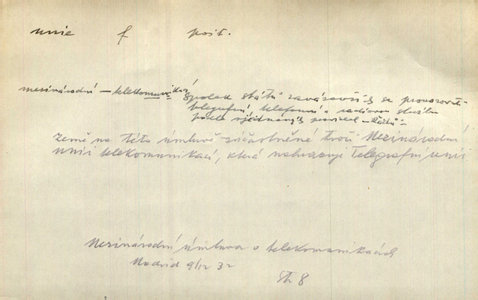 unie f pošt.
mezinárodní – telekomunikační spolek států zavázavších se provozovati
telegrafní, telefonní a radiovou službu
podle sjednaných pravidel
Země na této úmluvě zúčastněné tvoří Mezinárodní
unii telekomunikací, která nahrazuje Telegrafní unii
Mezinárodní úmluva o telekomunikacích
Madrid 9/12 32
Str 8